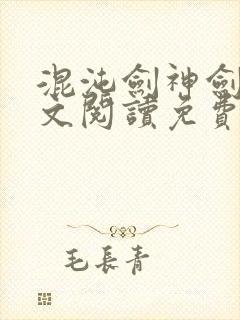 混沌劍神劍
文閱讀免費
毛長青